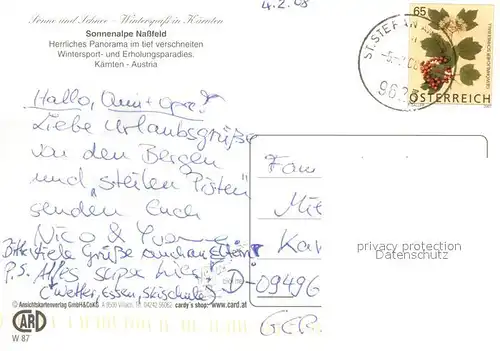 4.2.08
Sonne und Schnee - Winterspaß in Kärnten
Sonnenalpe Naßfeld
Herrliches Panorama im tief verschneiten
Wintersport- und Erholungsparadies.
Kärnten - Austria
65
ST. STEFAN
ÖSTERREICH
Hallo, Omi + Opa!
Liebe Urlaubsgrüße
von den Bergen
und "steilen Pisten"
senden Euch
Nico & Yvonne
Bitte viele Grüße
P.S. Alles super hier!
(Wetter, Essen, Skischule)
Fam
Mi
Ka
D-09496
GER
privacy protection
Datenschutz
© Ansichtskartenverlag GmbH&CoKG A 9509 Villach, Tel. 04242 55062 cardy's shop: www.card.at
CARD
W 87